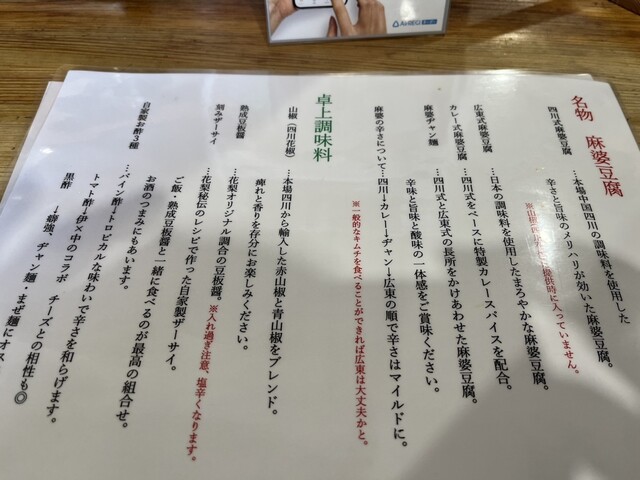 AirREGI オーダー
名物 麻婆豆腐
四川式麻婆豆腐 …本場中国四川の調味料を使用した
辛さと旨味のメリハリが効いた麻婆豆腐。
提供時に入っていません。
広東式麻婆豆腐 …日本の調味料を使用したまろやかな麻婆豆腐。
カレー式麻婆豆腐 …四川式をベースに特製カレースパイスを配合。
麻婆ヂャン麺 …四川式と広東式の長所をかけあわせた麻婆豆腐。
辛味と旨味と酸味の一体感をご賞味ください。
麻婆の辛さについて…四川→カレー→ヂャン→広東の順で辛さはマイルドに。
※一般的なキムチを食べることができれば広東は大丈夫かと。
卓上調味料
山椒(四川花椒) …本場四川から輸入した赤山椒と青山椒をブレンド。
痺れと香りを存分にお楽しみください。
熟成豆板醤 …花梨オリジナル調合の豆板醤。※入れ過ぎ注意、塩辛くなります。
刻みザーサイ …花梨秘伝のレシピで作った自家製ザーサイ。
ご飯・熟成豆板醤と一緒に食べるのが最高の組合せ。
お酒のつまみにもあいます。
自家製お酢3種 …パイン酢→トロピカルな味わいで辛さを和らげます。
トマト酢→伊×中のコラボ チーズとの相性も◎
黒酢 →癖強、ヂャン麺・まぜ麺にオス